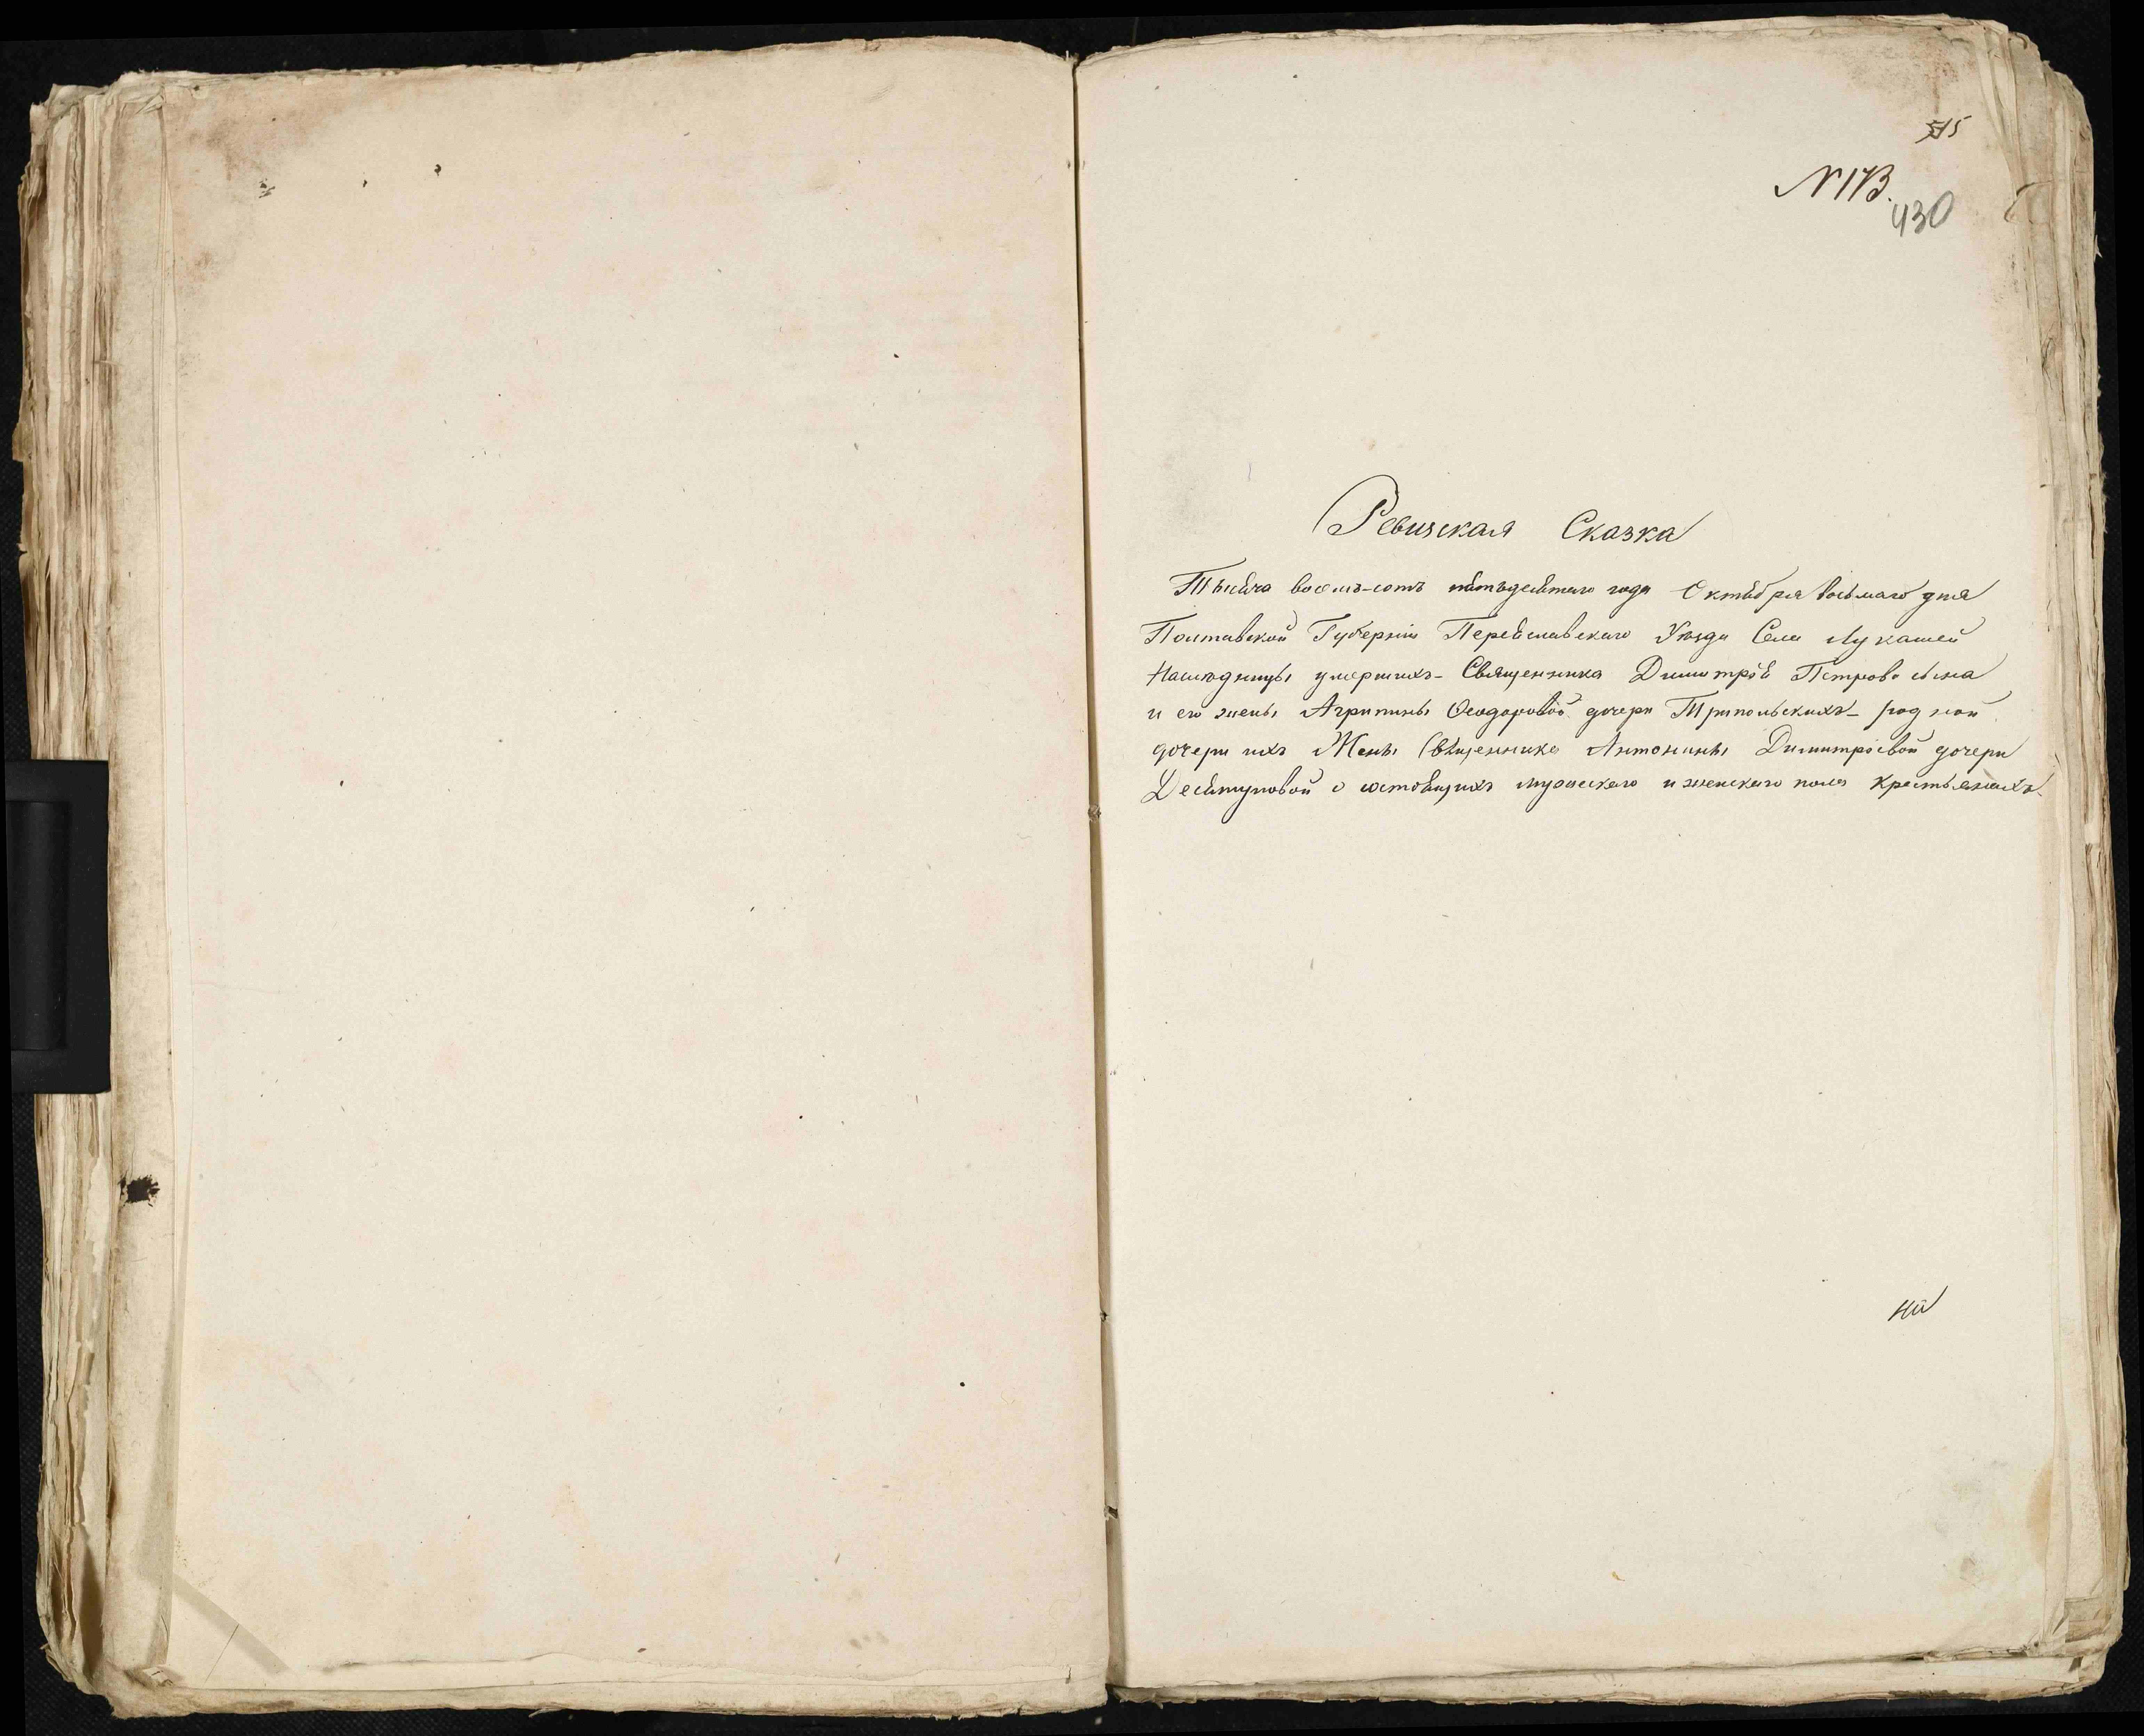 515
N 173.
430
Ревизская Сказка
Тысяча восемь-сотъ пятьдесятаго года Октября восьмаго дня
Полтавской Губерніи Переяславскаго Уѣзда Села Лукашей
Наследницы умершихъ - Священника Димитрія Петрова сына
и его жены Агрипины Ѳеодоровой дочери Трипольскихъ - родной
дочери ихъ Жены Священника Антонины Димитріевой дочери
о состоящихъ мужескаго и женскаго пола крестьянахъ.